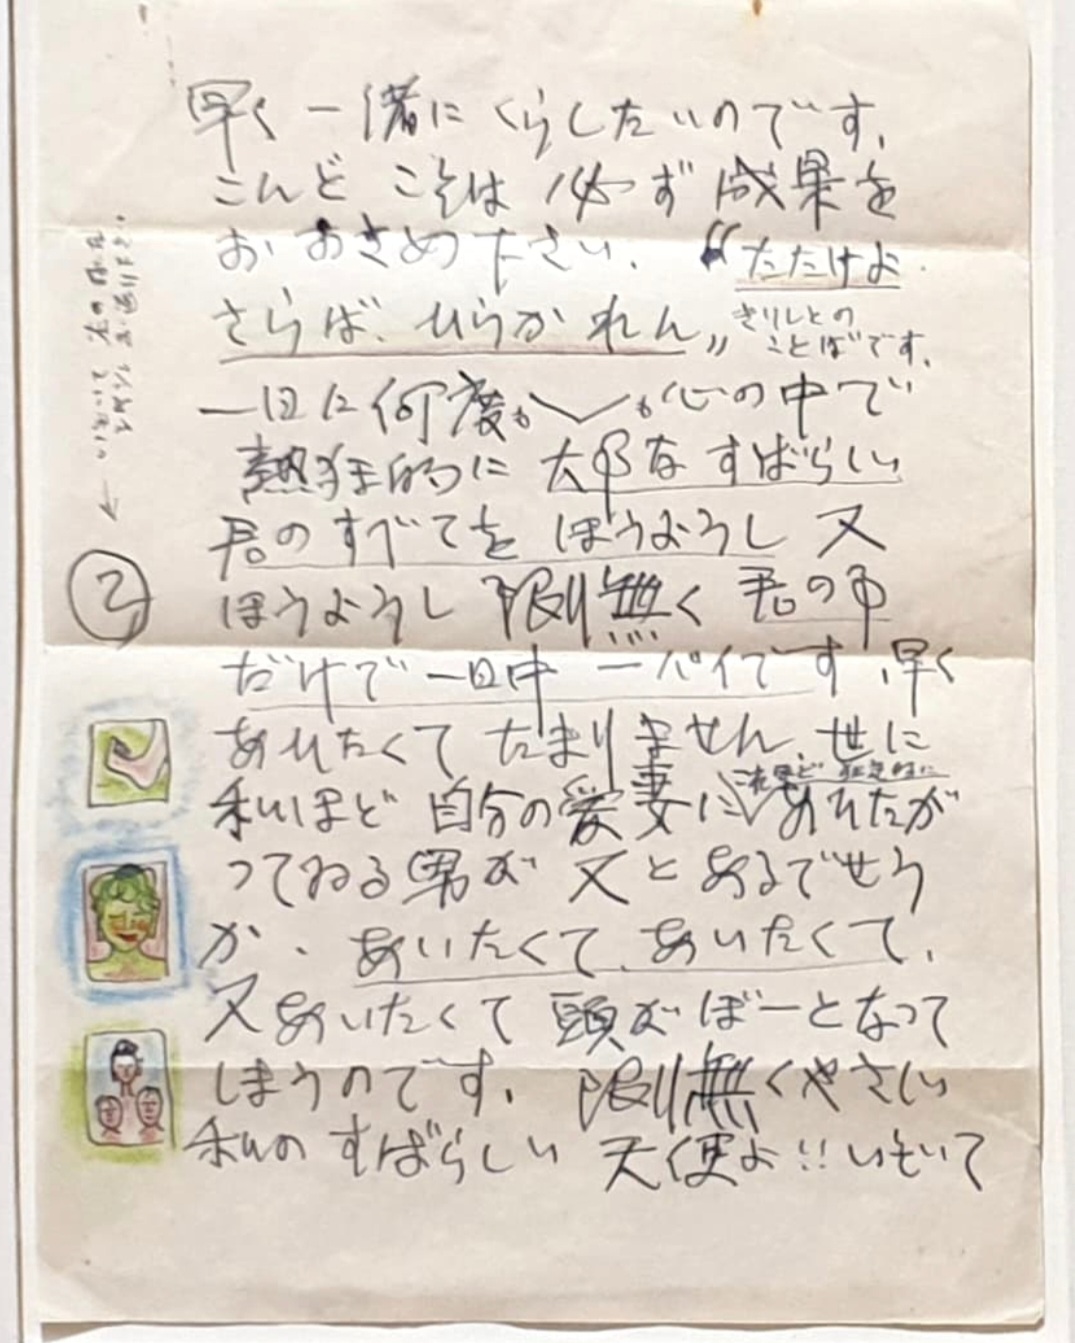 早く一緒にくらしたいのです、
こんどこそは必ず成果を
おおさめ下さい. “たたけよ
さらば、ひらかれん„ きりしとの
ことばです、
一日に何度も〳〵も心の中で
熱狂的に大好なすばらしい
君のすべてをほうようし又
ほうようし限無く君の事
だけで一日中一パイです、早く
あひたくてたまりません、世に
私ほど自分の愛妻に これほど 狂的に あひたが
ってゐる男が又とあるでせう
か、あいたくて、あいたくて、
又あいたくて頭がぼーとなって
しまうのです、限無くやさしい
私のすばらしい天使よ!!いそいで
②
← いそいで 次の